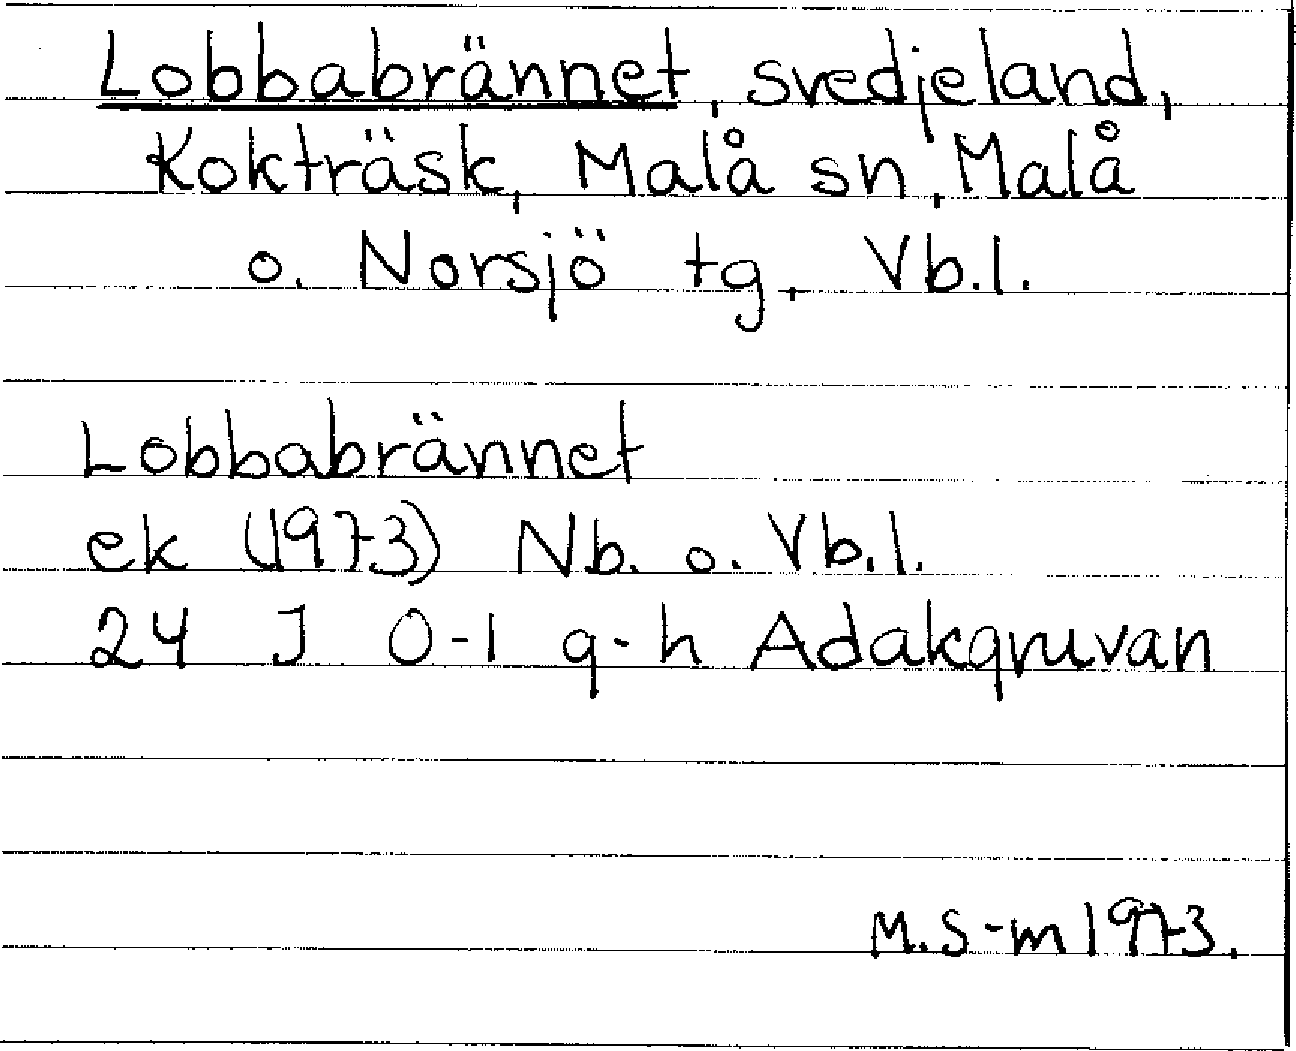 Lobbabrännet, svedjeland,
Kokträsk, Malå sn, Malå
o. Norsjö tg, Vb.l.
Lobbabrännet
ek (1973) Nb. o. Vb.l.
24 J 0-1 g-h Adakgruvan
M.S-m 1973.